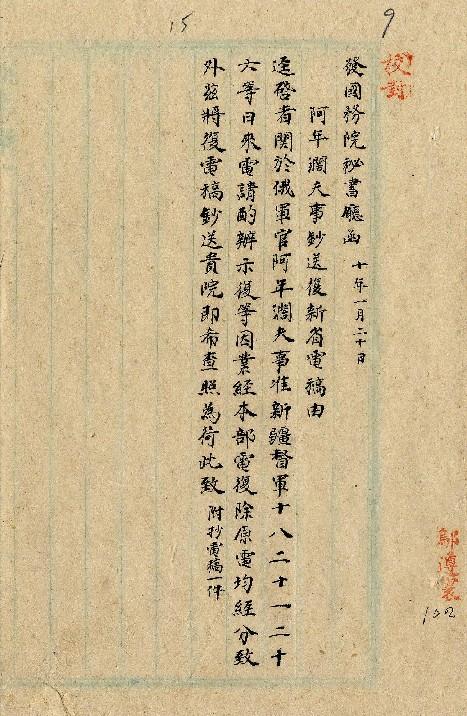 15
9
校對
發國務院祕書廳函 十年一月二十日
阿年濶夫事鈔送復新省電稿由
逕啓者關於俄軍官阿年濶夫事准新疆督軍十八二十一二十
六等日來電請酌辦示復等因業經本部電復除原電均經分致
外茲將復電稿鈔送貴院即希查照為荷此致 附抄電稿一件
102